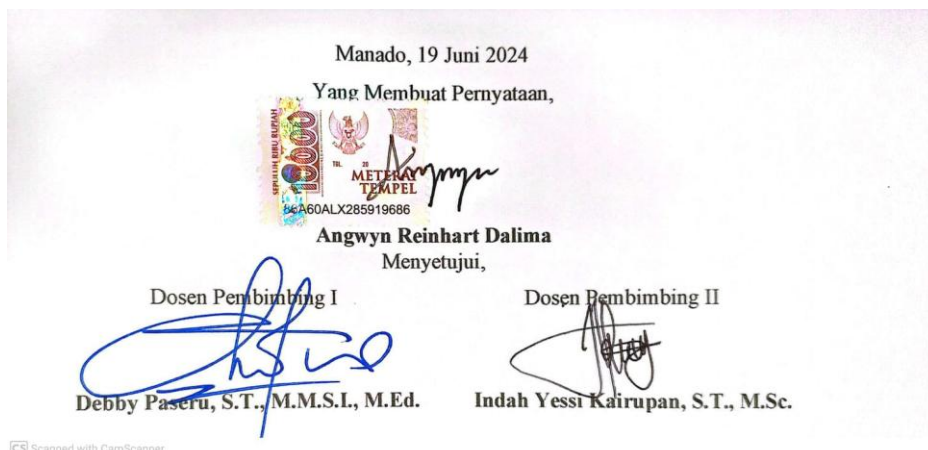 Manado, 19 Juni 2024
Yang Membuat Pernyataan,
SEPULUH RIBU RUPIAH
10000
TGL. 20
METERAI
TEMPEL
86A60ALX285919686
Angwyn Reinhart Dalima
Menyetujui,
Dosen Pembimbing I Dosen Pembimbing II
Debby Paseru, S.T., M.M.S.I., M.Ed. Indah Yessi Kairupan, S.T., M.Sc.
CS Scanned with CamScanner